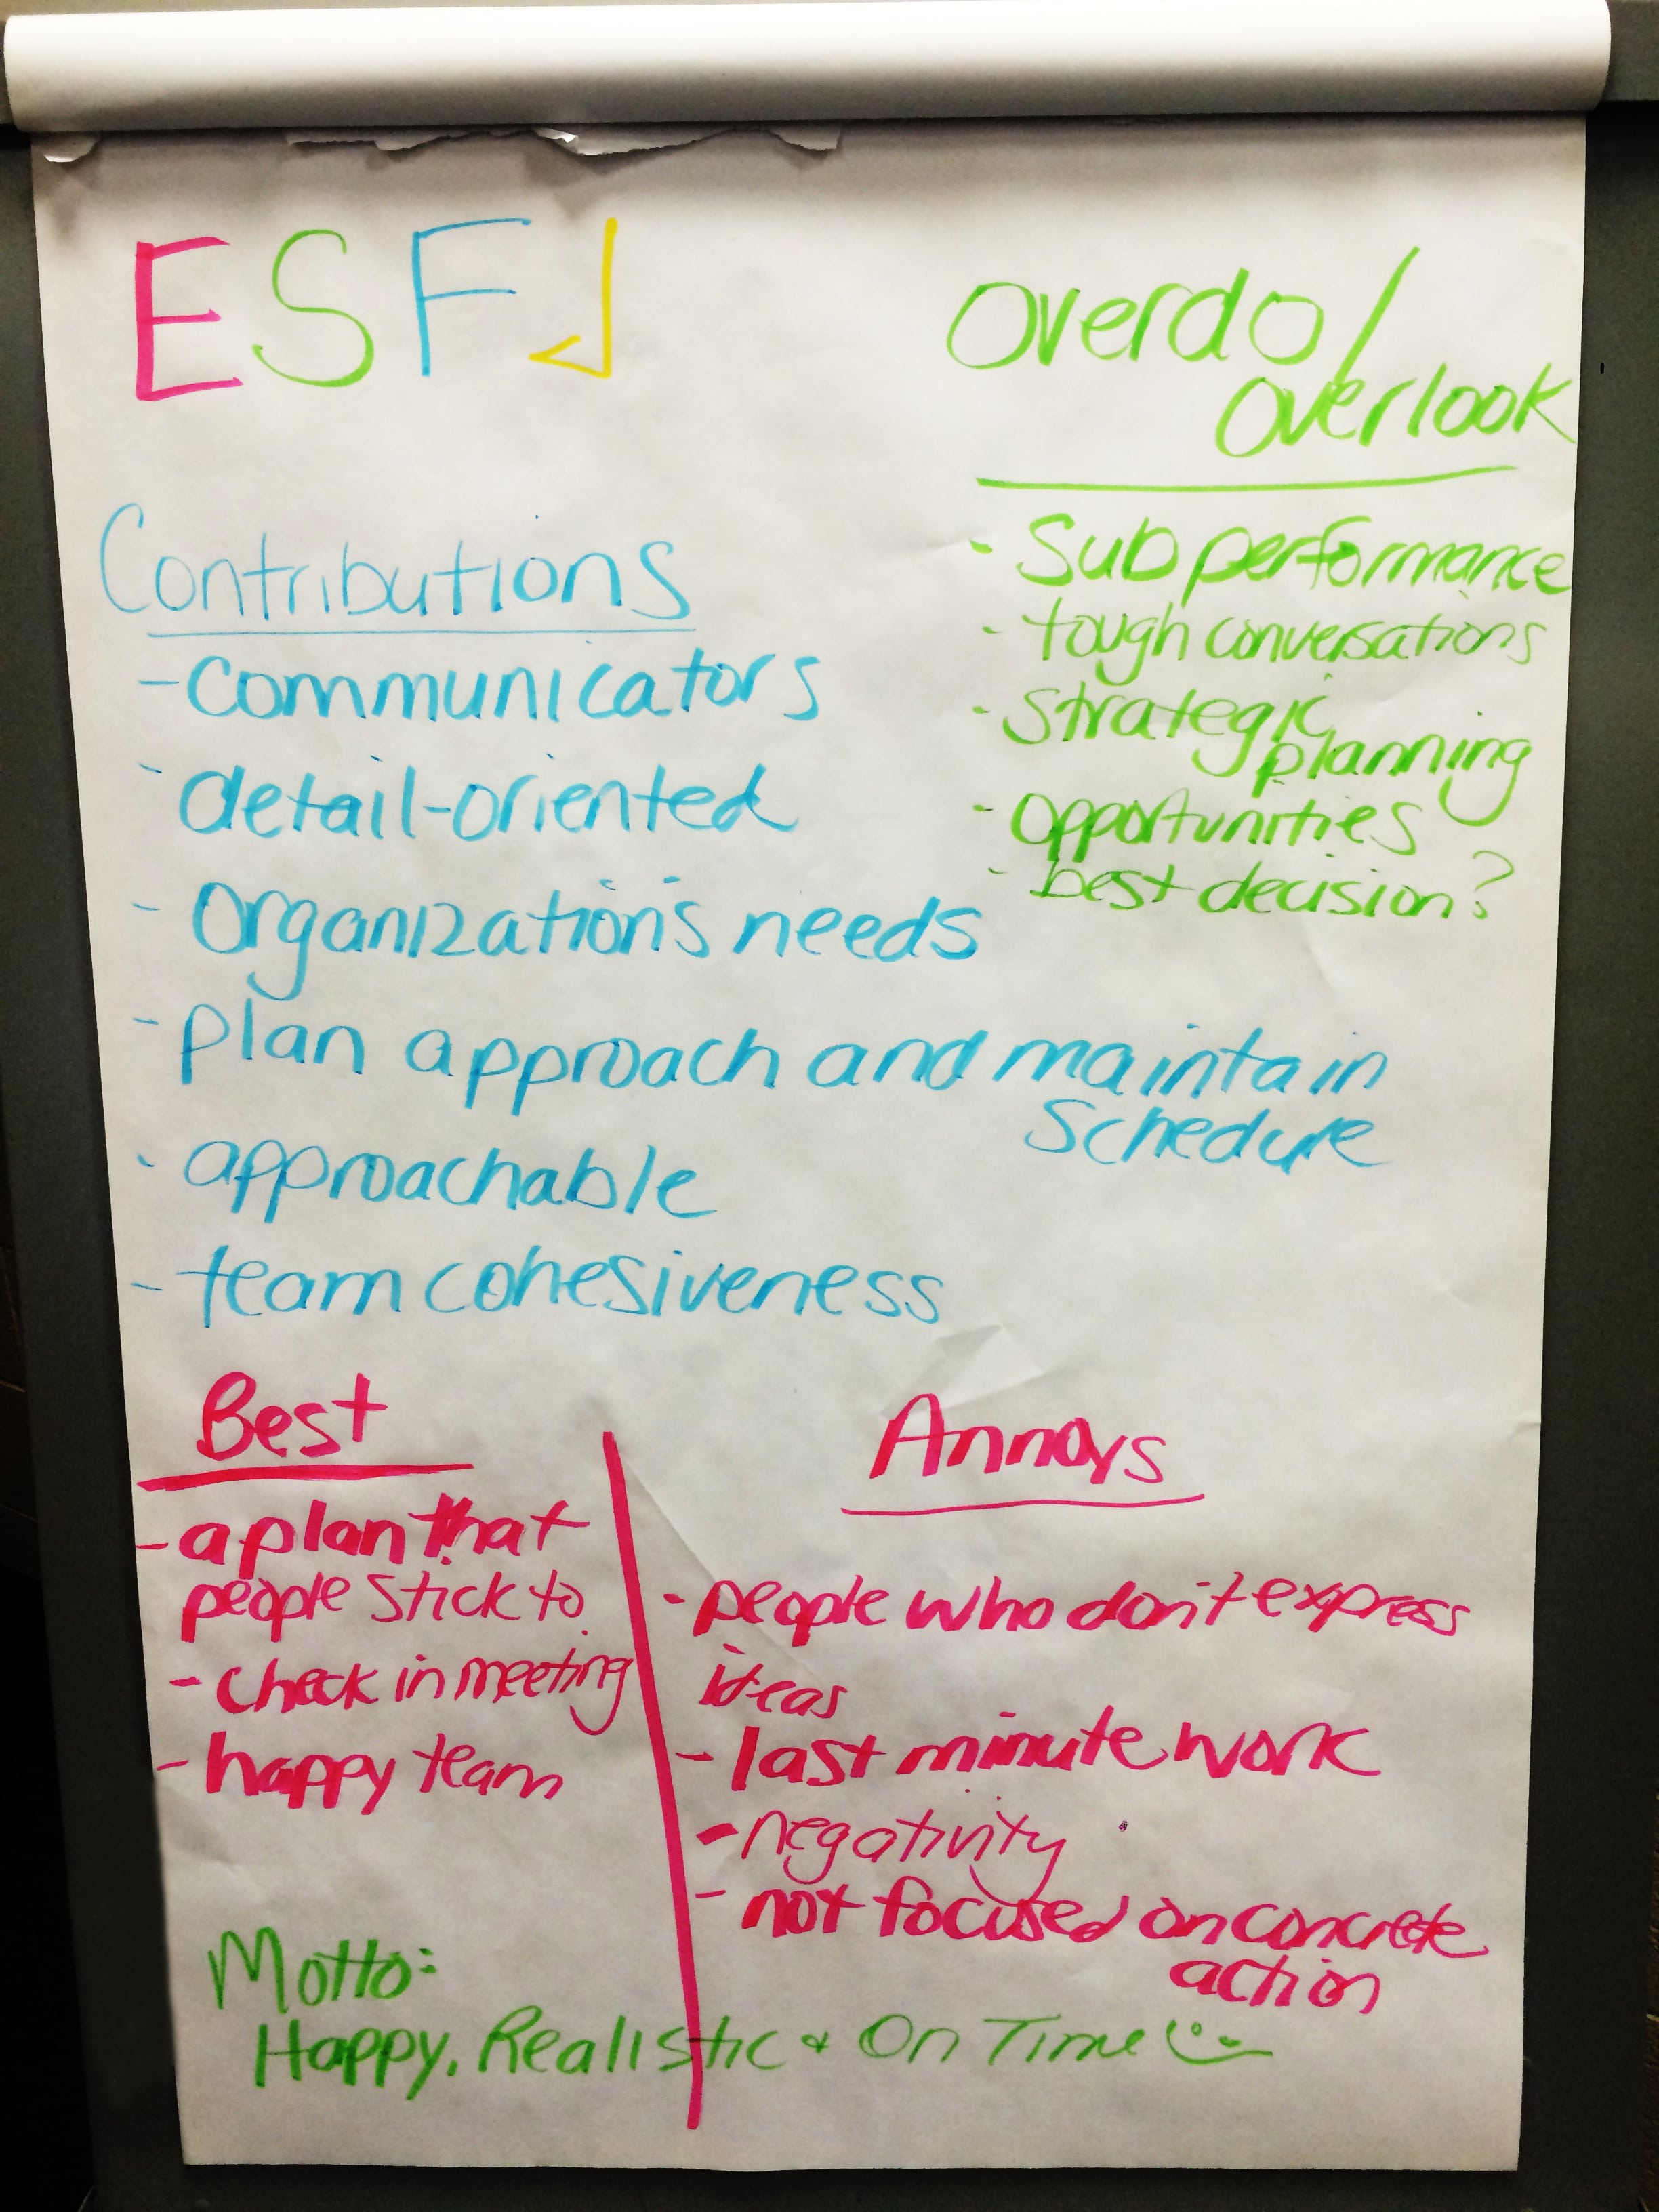 ESFJ
Overdo/
Overlook
- Sub performance
- tough conversations
- Strategic
planning
- Opportunities
- best decision?
Contributions
- communicators
- detail-oriented
- Organization's needs
- plan approach and maintain
Schedule
- approachable
- team cohesiveness
Best
- a plan that
people stick to.
- Check in meeting
- happy team
Annoys
- people who don't express
ideas
- last minute work
- negativity
- not focused on concrete
action
Motto:
Happy, Realistic & On Time